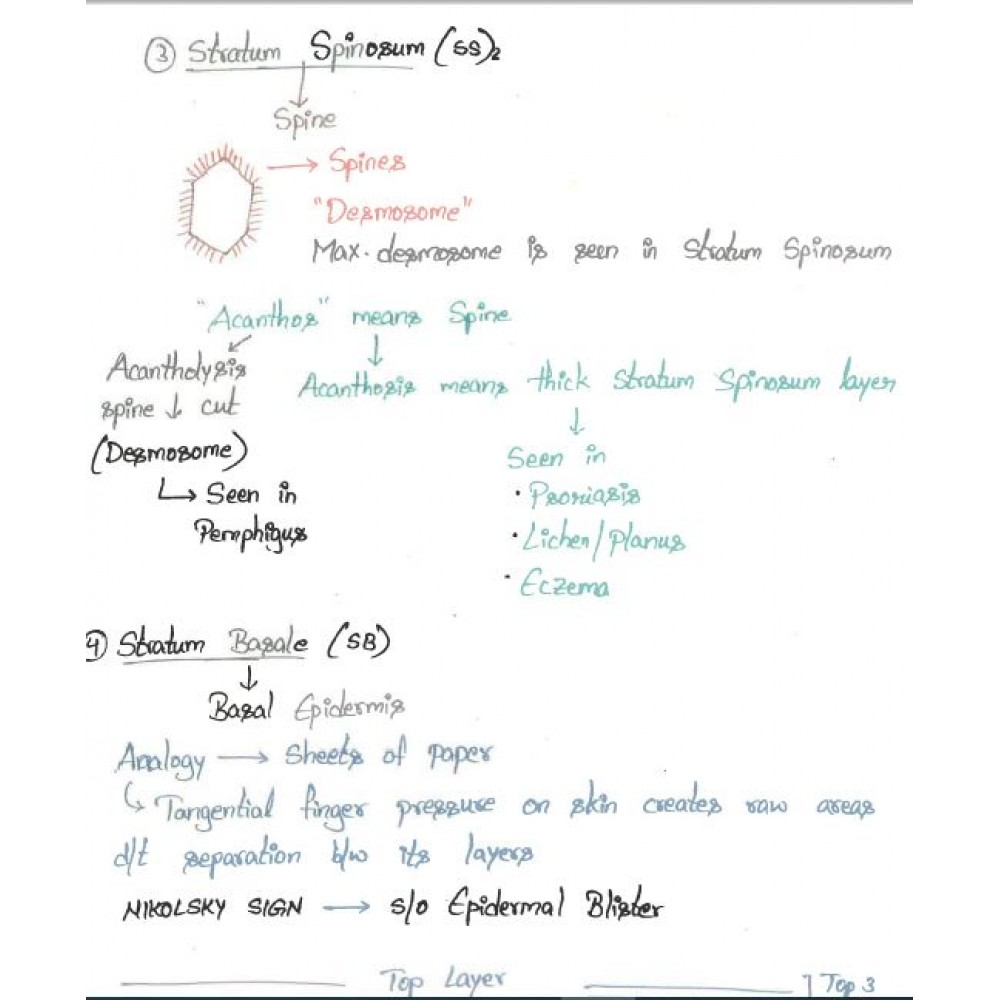 ③ Stratum Spinosum (SS)2
Spine
Spines
"Desmosome"
Max. desmosome is seen in Stratum Spinosum
"Acanthos" means Spine
Acantholysis
spine ↓ cut
(Desmosome)
↳ Seen in
Pemphigus
Acanthosis means thick Stratum Spinosum layer
Seen in
• Psoriasis
• Lichen/Planus
• Eczema
④ Stratum Basale (SB)
↓
Basal Epidermis
Analogy → Sheets of paper
↳ Tangential finger pressure on skin creates raw areas
d/t separation b/w its layers
NIKOLSKY SIGN → s/o Epidermal Blister
Top Layer
Top 3